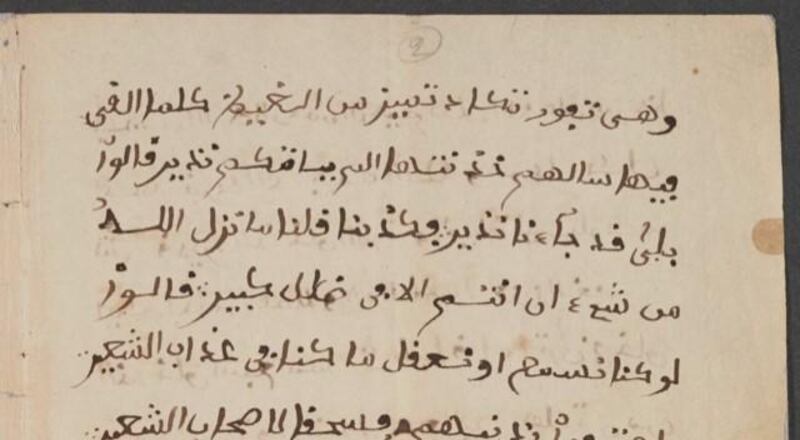 2
وهى تفور تكاد تميز من الغيظ كلما القى
فيها سالهم خزنتها الم ياتكم نذير قالوا
بلى قد جاءنا نذير فكذبنا قلنا ما نزل الله
من شىء ان انتم الا فى ضلل كبير قالوا
لو كنا نسمع او نعقل ما كنا فى عذاب الشعير
بذنبهم فسحقا لاصحاب الشعير